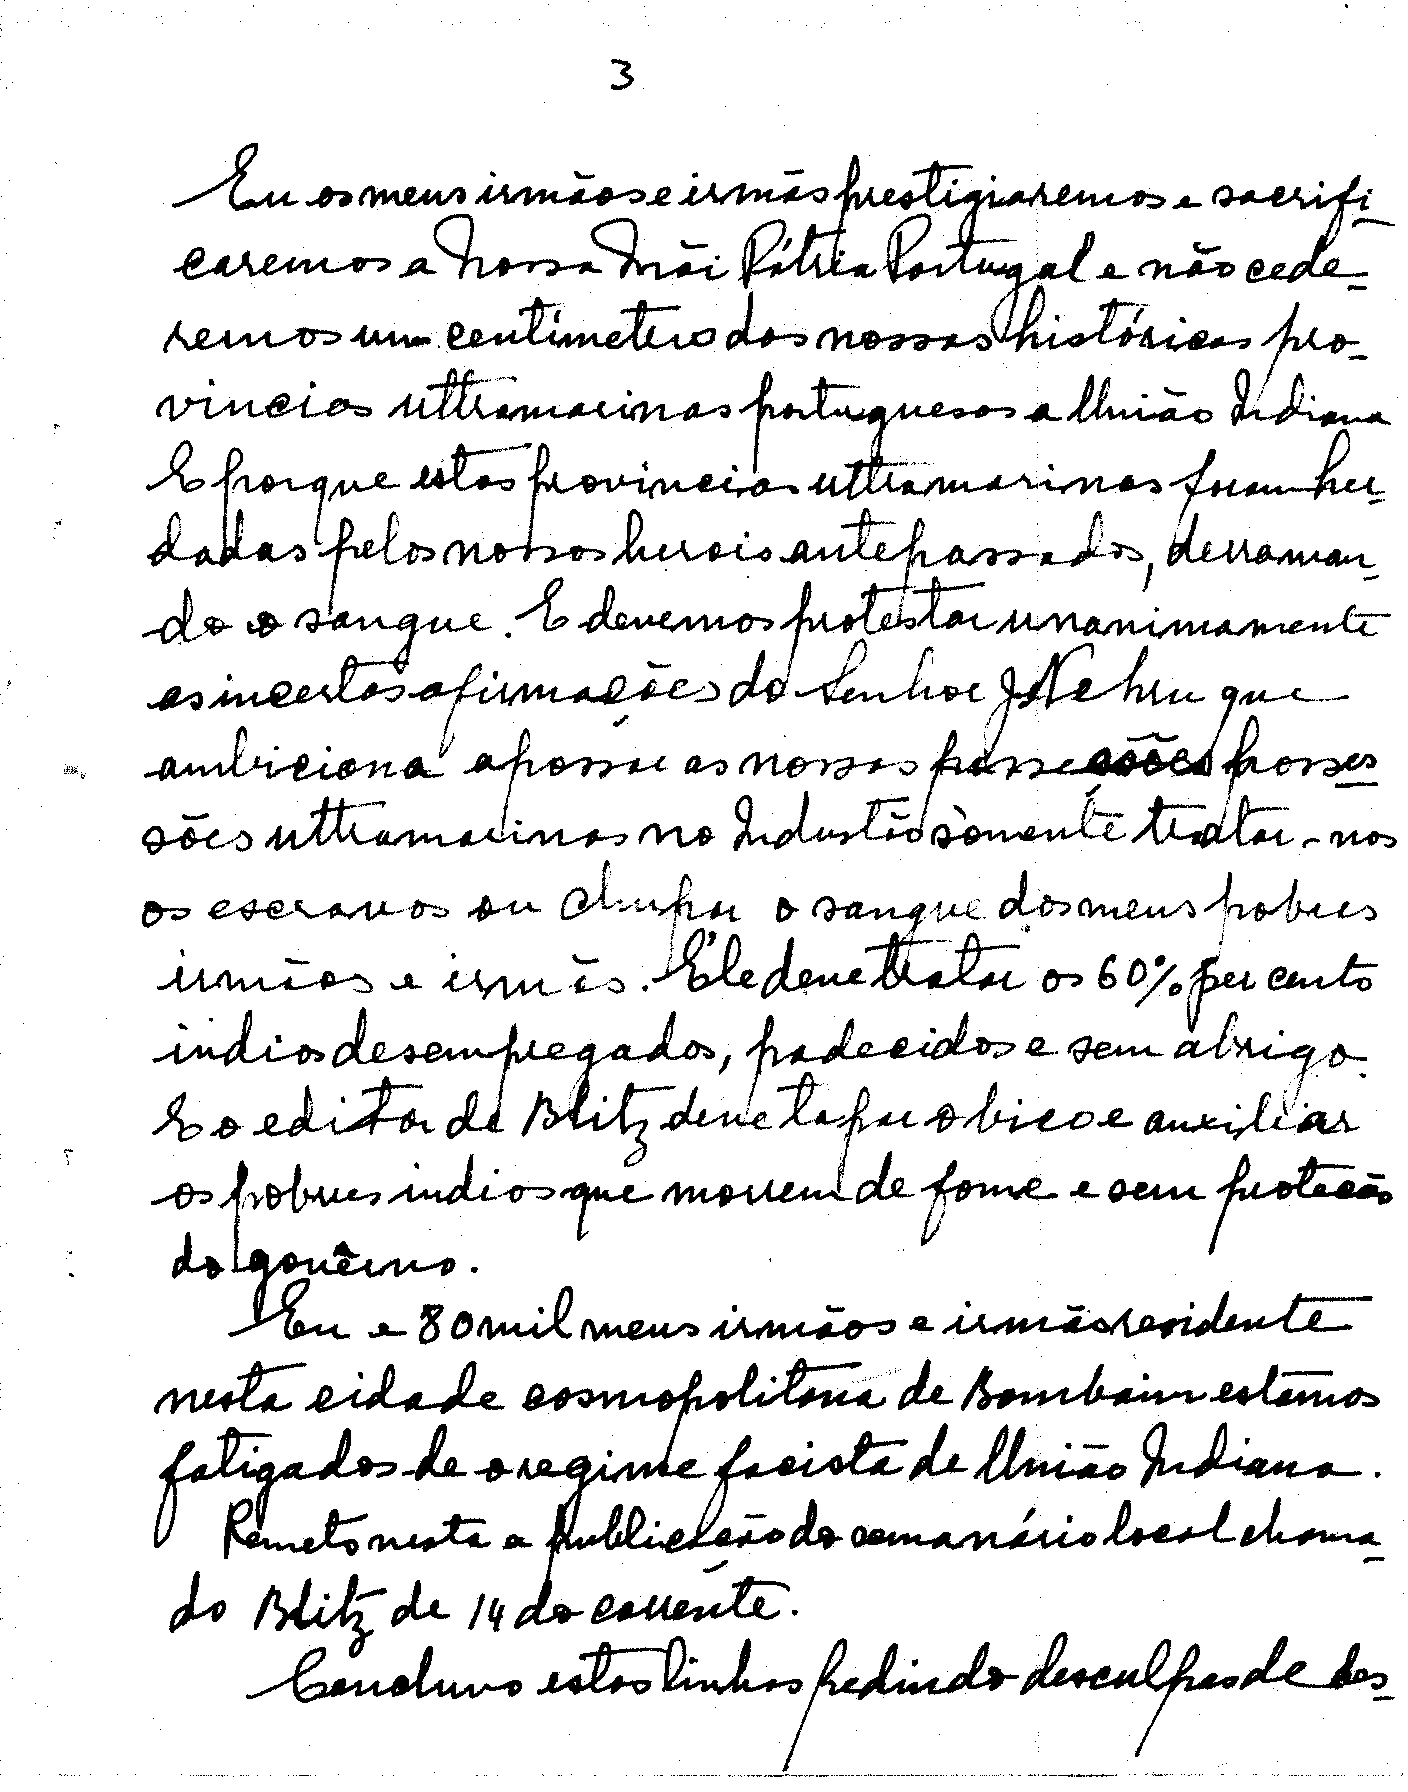 3
Eu os meus irmãos e irmãs prestigiaremos e sacrifi-
caremos a Nossa Mãi Pátria Portugal e não cede-
remos um centímetro das nossas históricas pro-
vincias ultramarinas portuguesas a União Indiana
E porque estas provincias ultramarinas foram her-
dadas pelos nossos herois antepassados, derraman-
do o sangue. E devemos protestar unanimamente
as incertas afirmações do Senhor J. Nehru que
ambiciona apossar as nossas possesões posses-
sões ultramarinas no Industão sòmente tratar-nos
os escravos ou chupar o sangue dos meus pobres
irmãos e irmãs. Êle deve tratar os 60% per cento
indios desempregados, padecidos e sem abrigo.
E o editor de Blitz deve tapar o bico e auxiliar
os pobres indios que morrem de fome e sem proteção
do govêrno.
Eu e 80 mil meus irmãos e irmãs residente
nesta cidade cosmopolitana de Bombaim estamos
fatigados de o regime facista de União Indiana.
Remeto nesta a publicação do semanário local chama-
do Blitz de 14 do corrente.
Concluvo estas linhas pedindo desculpas de des-